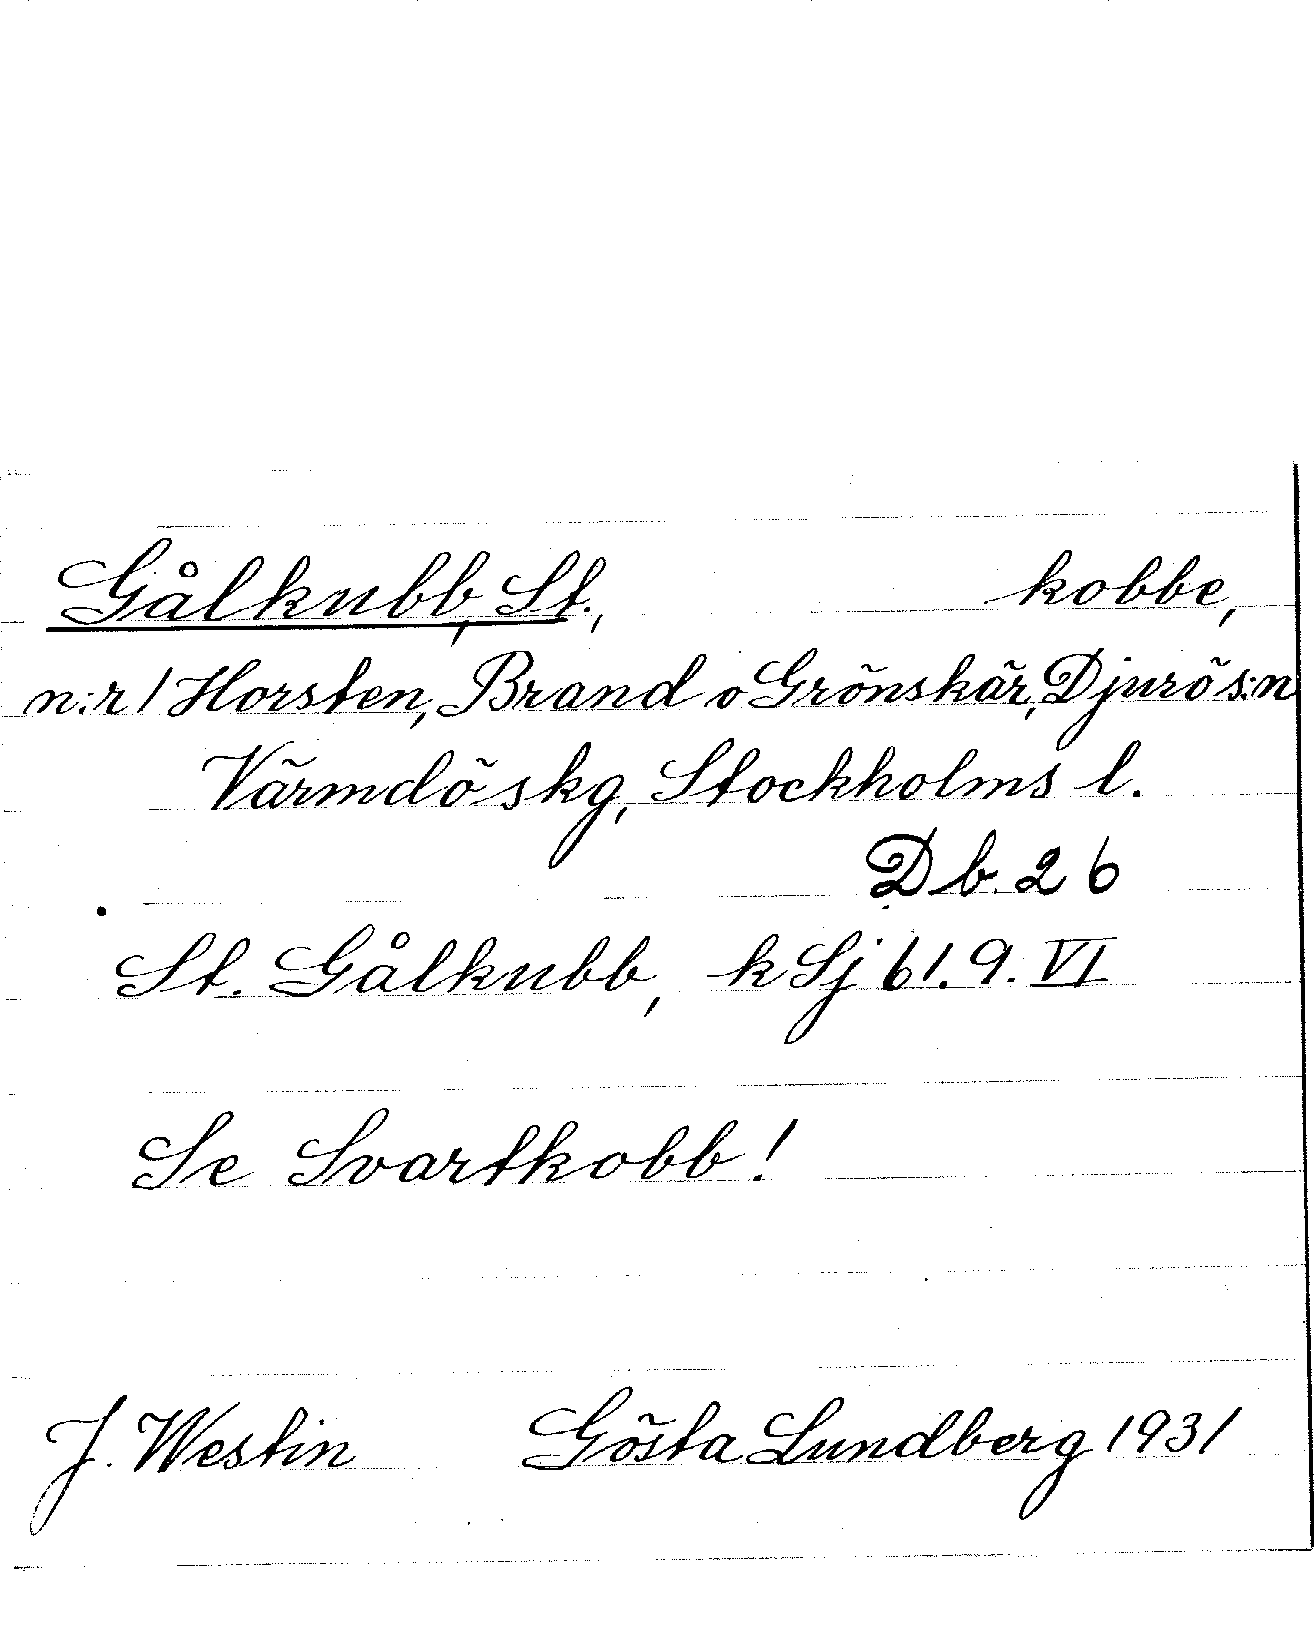 Gålkubb, St., kobbe,
n:r 1 Horsten, Brand o Grönskär, Djurö s:n
Värmdö skg, Stockholms l.
Db 26
St. Gålkubb, k Sj 61.9.VI
Se Svartkobb!
J. Westin Gösta Lundberg 1931